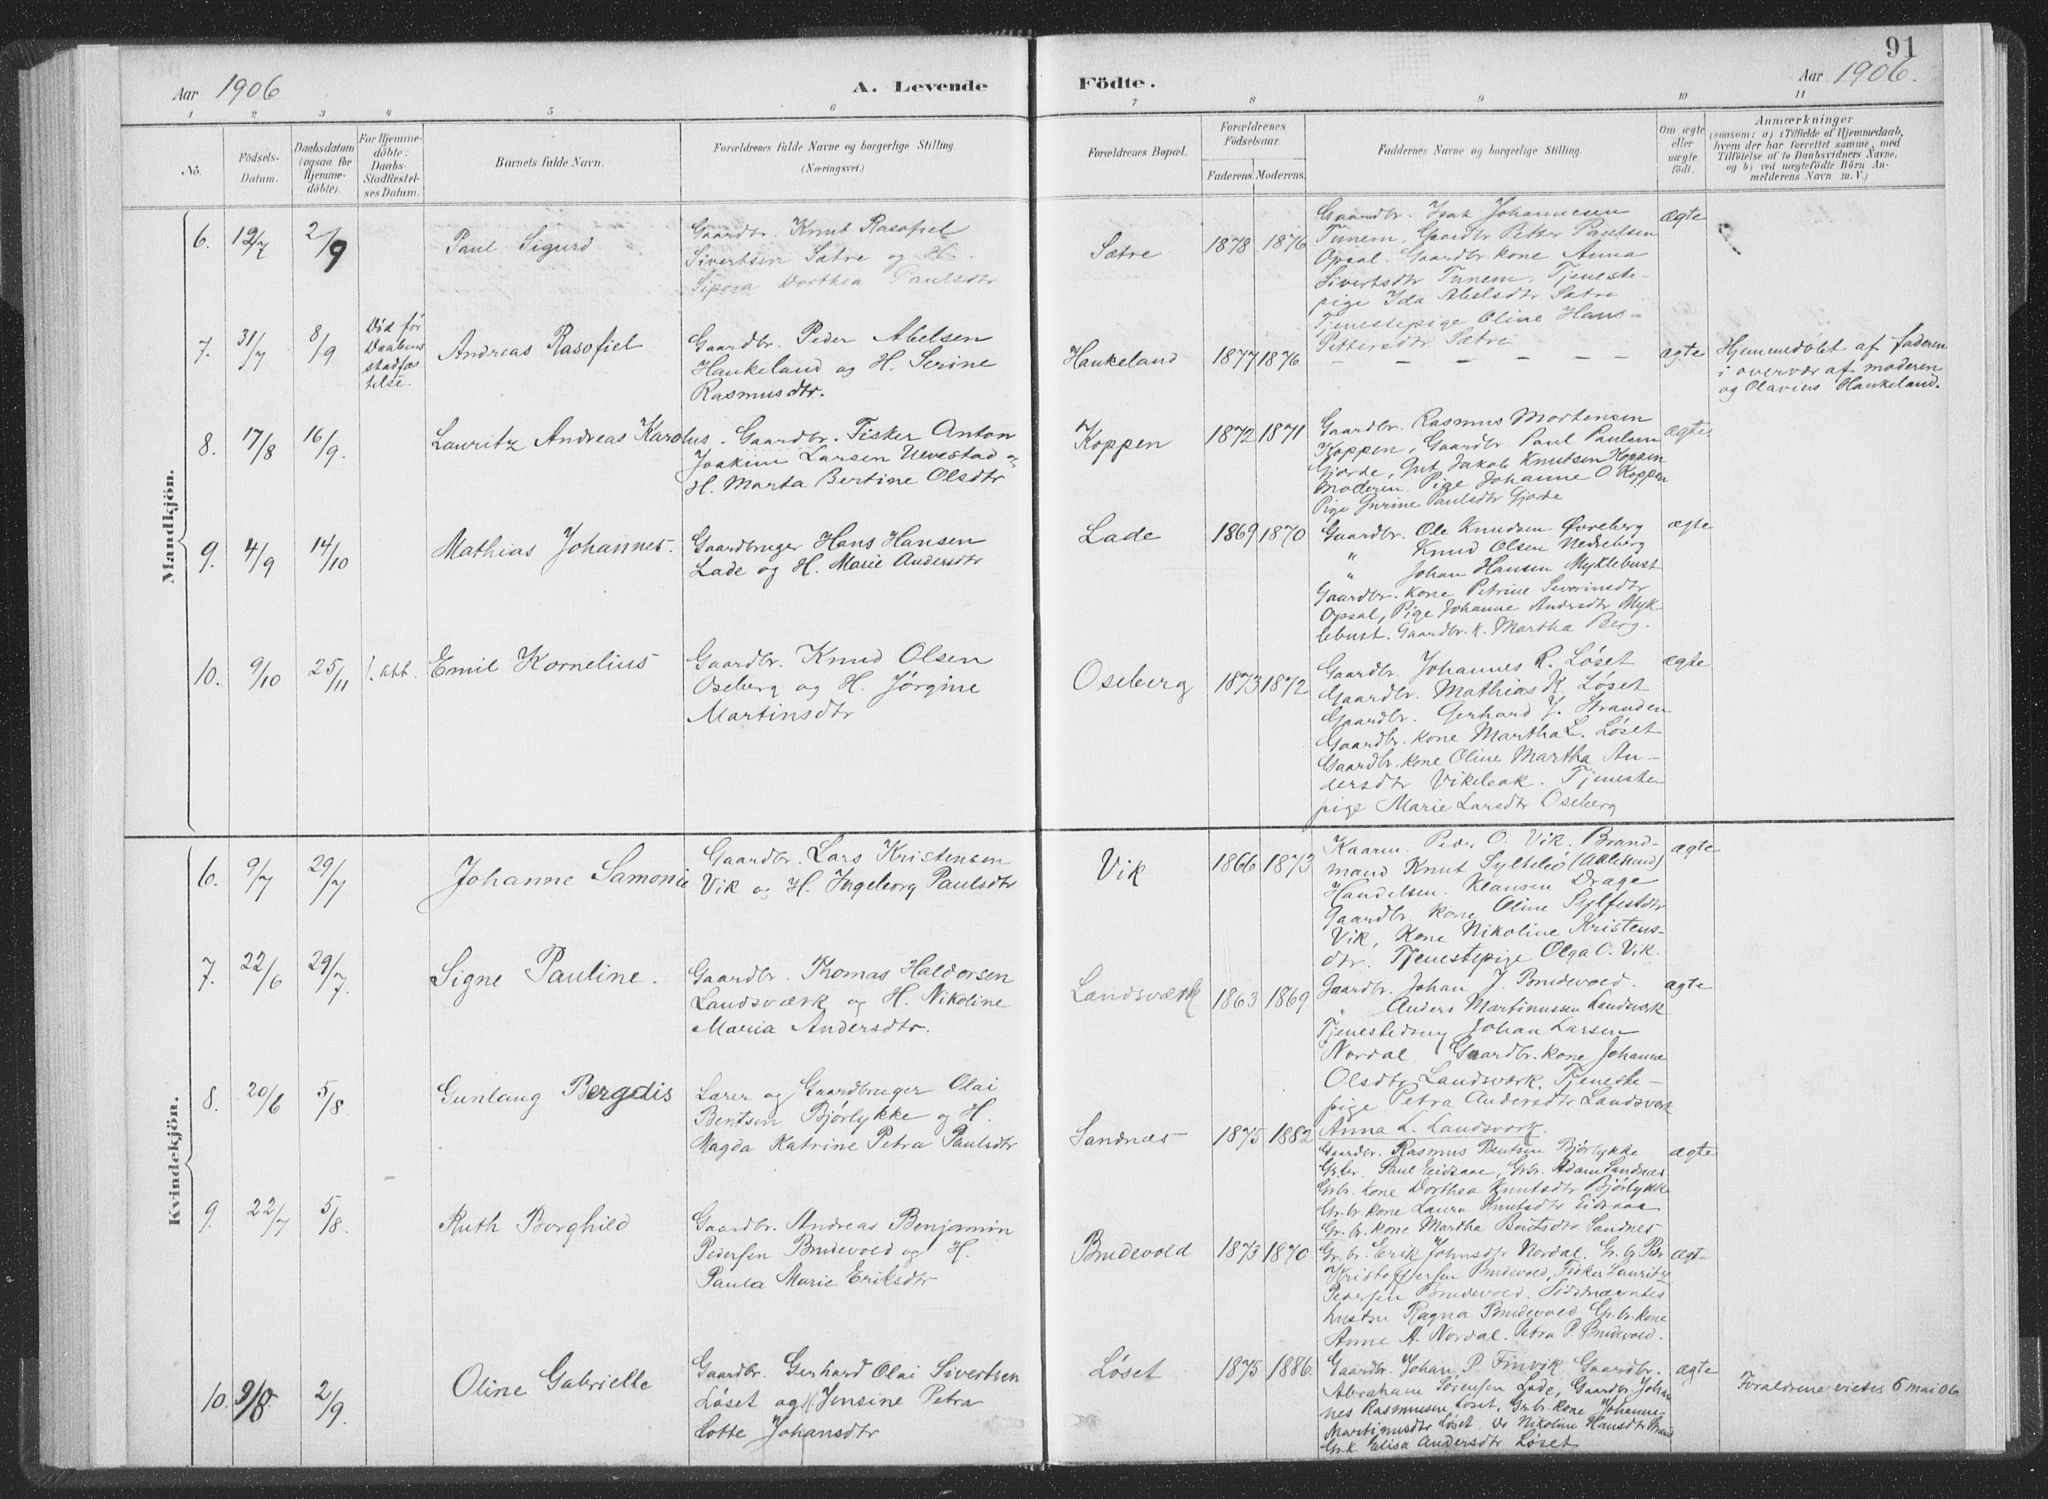 91
Aar 1906
A. Levende
Födte.
Aar 1906.
1 2 3 4 5 6 7 8 9 10 11
Nö.
Födsels-
Datum.
Daabsdatum
(ogsaa for
Hjemme-
döbte).
For Hjemme-
döbte:
Daabs-
Stadfæstel-
ses Datum.
Barnets fulde Navn.
Forældrenes fulde Navne og borgerlige Stilling
(Næringsvei.)
Forældrenes Bopæl.
Forældrenes
Födselsaar.
Faderens. Moderens.
Faddernes Navne og borgerlige Stilling.
Om ægte
eller
uægte
födt.
Anmærkninger
(saasom: a) i Tilfælde af Hjemmedaab,
hvem der har forrettet samme, med
Tilföielse af to Daabsvidners Navne,
og b) ved uægtefödte Börn An-
melderens Navn m. V.)
Mandkjön.
6. 12/7 2/9
Paul Sigurd
Gaardbr. Knut Rasofiel
Sivertsen Sætre og H.
Sipora Dorthea Paulsdtr
Sætre 1878 1876
Gaardbr. Isak Johannesen
Tunem, Gaardbr Petter Paulsen
Opsal. Gaardbr. kone Anna
Sivertsdtr Tunem, Tjeneste-
pige Ida Abelsdtr Sætre
Tjenestepige Oline Hans-
Pettersdtr Sætre
ægte
7. 31/7 8/9
Død før
Daabens
stadfæs
telse.
Andreas Rasofiel
Gaardbr. Peder Abelsen
Haukeland og H. Serine
Rasmusdtr.
Haukeland 1877 1876
– – – – – –
ægte
Hjemmedøbt af faderen
i overvær af moderen
og Olavius Haukeland.
8. 17/8 16/9.
Lauritz Andreas Karolus.
Gaardbr. Fisker Anton
Joakim Larsen Urvestad og
H. Marta Bertine Olsdtr
Koppen 1872 1871
Gaardbr. Rasmus Mortensen
Koppen, Gaardbr. Paul Paulsen
Gjørde, Gut Jakob Knutsen Koppen
Moderen. Pige Johanne O. Koppen
Pige Gurine Paulsdtr Gjørde
ægte
9. 4/9 14/10
Mathias Johannes.
Gaardbruger Hans Hansen
Lade og H. Marie Andersdtr
Lade 1869 1870
Gaardbr. Ole Knudsen Øvreberg
" Knud Olsen Nedreberg
" Johan Hansen Myklebust
Gaardbr. kone Petrine Severinsdtr
Opsal, Pige Johanne Andersdtr Myk-
lebust. Gaardbr. k. Martha Berg.
ægte
10. 9/10 25/11
Emil Kornelius
Gaardbr. Knud Olsen
Oseberg og H. Jørgine
Martinsdtr
Oseberg 1873 1872
Gaardbr. Johannes R. Løset
Gaardbr. Mathias K. Løset
Gaardbr. Gerhard J. Stranden
Gaardbr. kone Martha L. Løset
Gaardbr. kone Oline Martha An-
dersdtr Vikeleak. Tjeneste
pige Marie Larsdtr Oseberg
ægte
Kvindekjön.
6. 9/7 29/7
Johanne Samonie
Gaardbr. Lars Kristensen
Vik og H. Ingeborg Paulsdtr
Vik 1866 1873
Kaarm. Peder O. Vik. Brand-
mand Knut Syltelid (Aalesund)
Handelsm. Klausen Drage
Gaardbr. kone Oline Sylfestdtr
Vik, Kone Nikoline Kristens-
dtr. Tjenestepige Olga O. Vik.
ægte
7. 22/6 29/7.
Signe Pauline.
Gaardbr. Thomas Haldorsen
Landsværk og H. Nikoline
Maria Andersdtr.
Landsværk 1863 1869
Gaardbr. Johan J. Brudevold.
" Anders Martinussen Landsværk
Tjenestedreng Johan Larsen
Nordal Gaardbr. kone Johanne
Olsdtr Landsværk. Tjeneste-
pige Petra Andersdtr Landsværk
Anna L. Landsværk.
ægte
8. 20/6 5/8
Gunlaug Bergdis
Lærer og Gaardbruger Olai
Bentsen Bjørlykke og H.
Magda Katrine Petra Paulsdtr
Sandnæs 1875 1882
Gaardbr. Rasmus Bentsen Bjørlykke
Grbr. Paul Eidsaae, Grbr. Adam Sandnæs
Grbr. kone Dorthea Knutsdtr Bjørlykke
Gr. br. kone Laura Knutsdtr Eidsaae
Gr. br. kone Martha Bentsdtr Sandnes
ægte
9. 22/7 5/8.
Ruth Borghild
Gaardbr. Andreas Benjamin
Pedersen Brudevold og H.
Paula Marie Eriksdtr
Brudevold 1873 1870
Gr. br. Erik Johnsdr Nordal. Gr. br Peder
Kristoffersen Brudevold, Fisker Lauritz
Pedersen Brudevold.
hustru Ragna Brudevold Gr. br. kone
Anne A. Nordal. Petra P. Brudevold.
ægte
10. 9/8 2/9.
Oline Gabrielle
Gaardbr. Gerhard Olai Sivertsen
Løset og H Jensine Petra
Lotte Johansdtr
Løset 1875 1886
Gaardbr. Johan P. Finvik Gaardbr.
Abraham Sørensen Lade, Gaardbr Johan
nes Rasmussen Løset, Gr. br. kone Johanne
Martinusdtr Løset Nikoline Hansdtr
Gr. k Elisa Andersdtr Løset
ægte
Forældrene viedes 6 mai 06